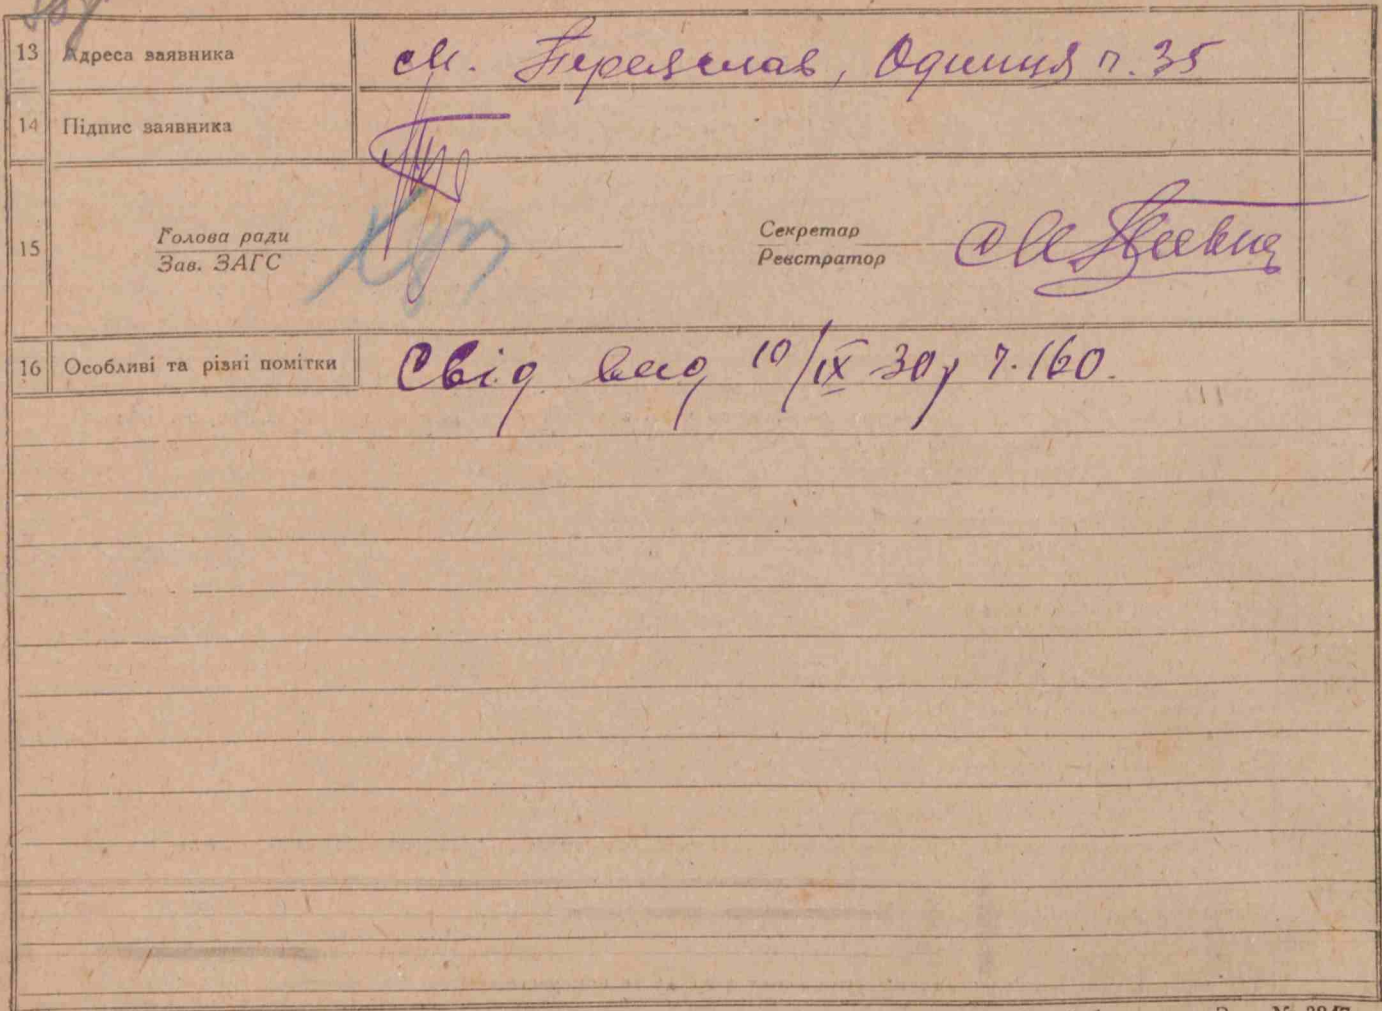 13 Адреса заявника м. Переяслав, Одиниця п. 35
14 Підпис заявника
15 Голова ради
Зав. ЗАГС
Секретар
Реєстратор
16 Особливі та різні помітки Свід. вид 10/IX 30р ч. 160.